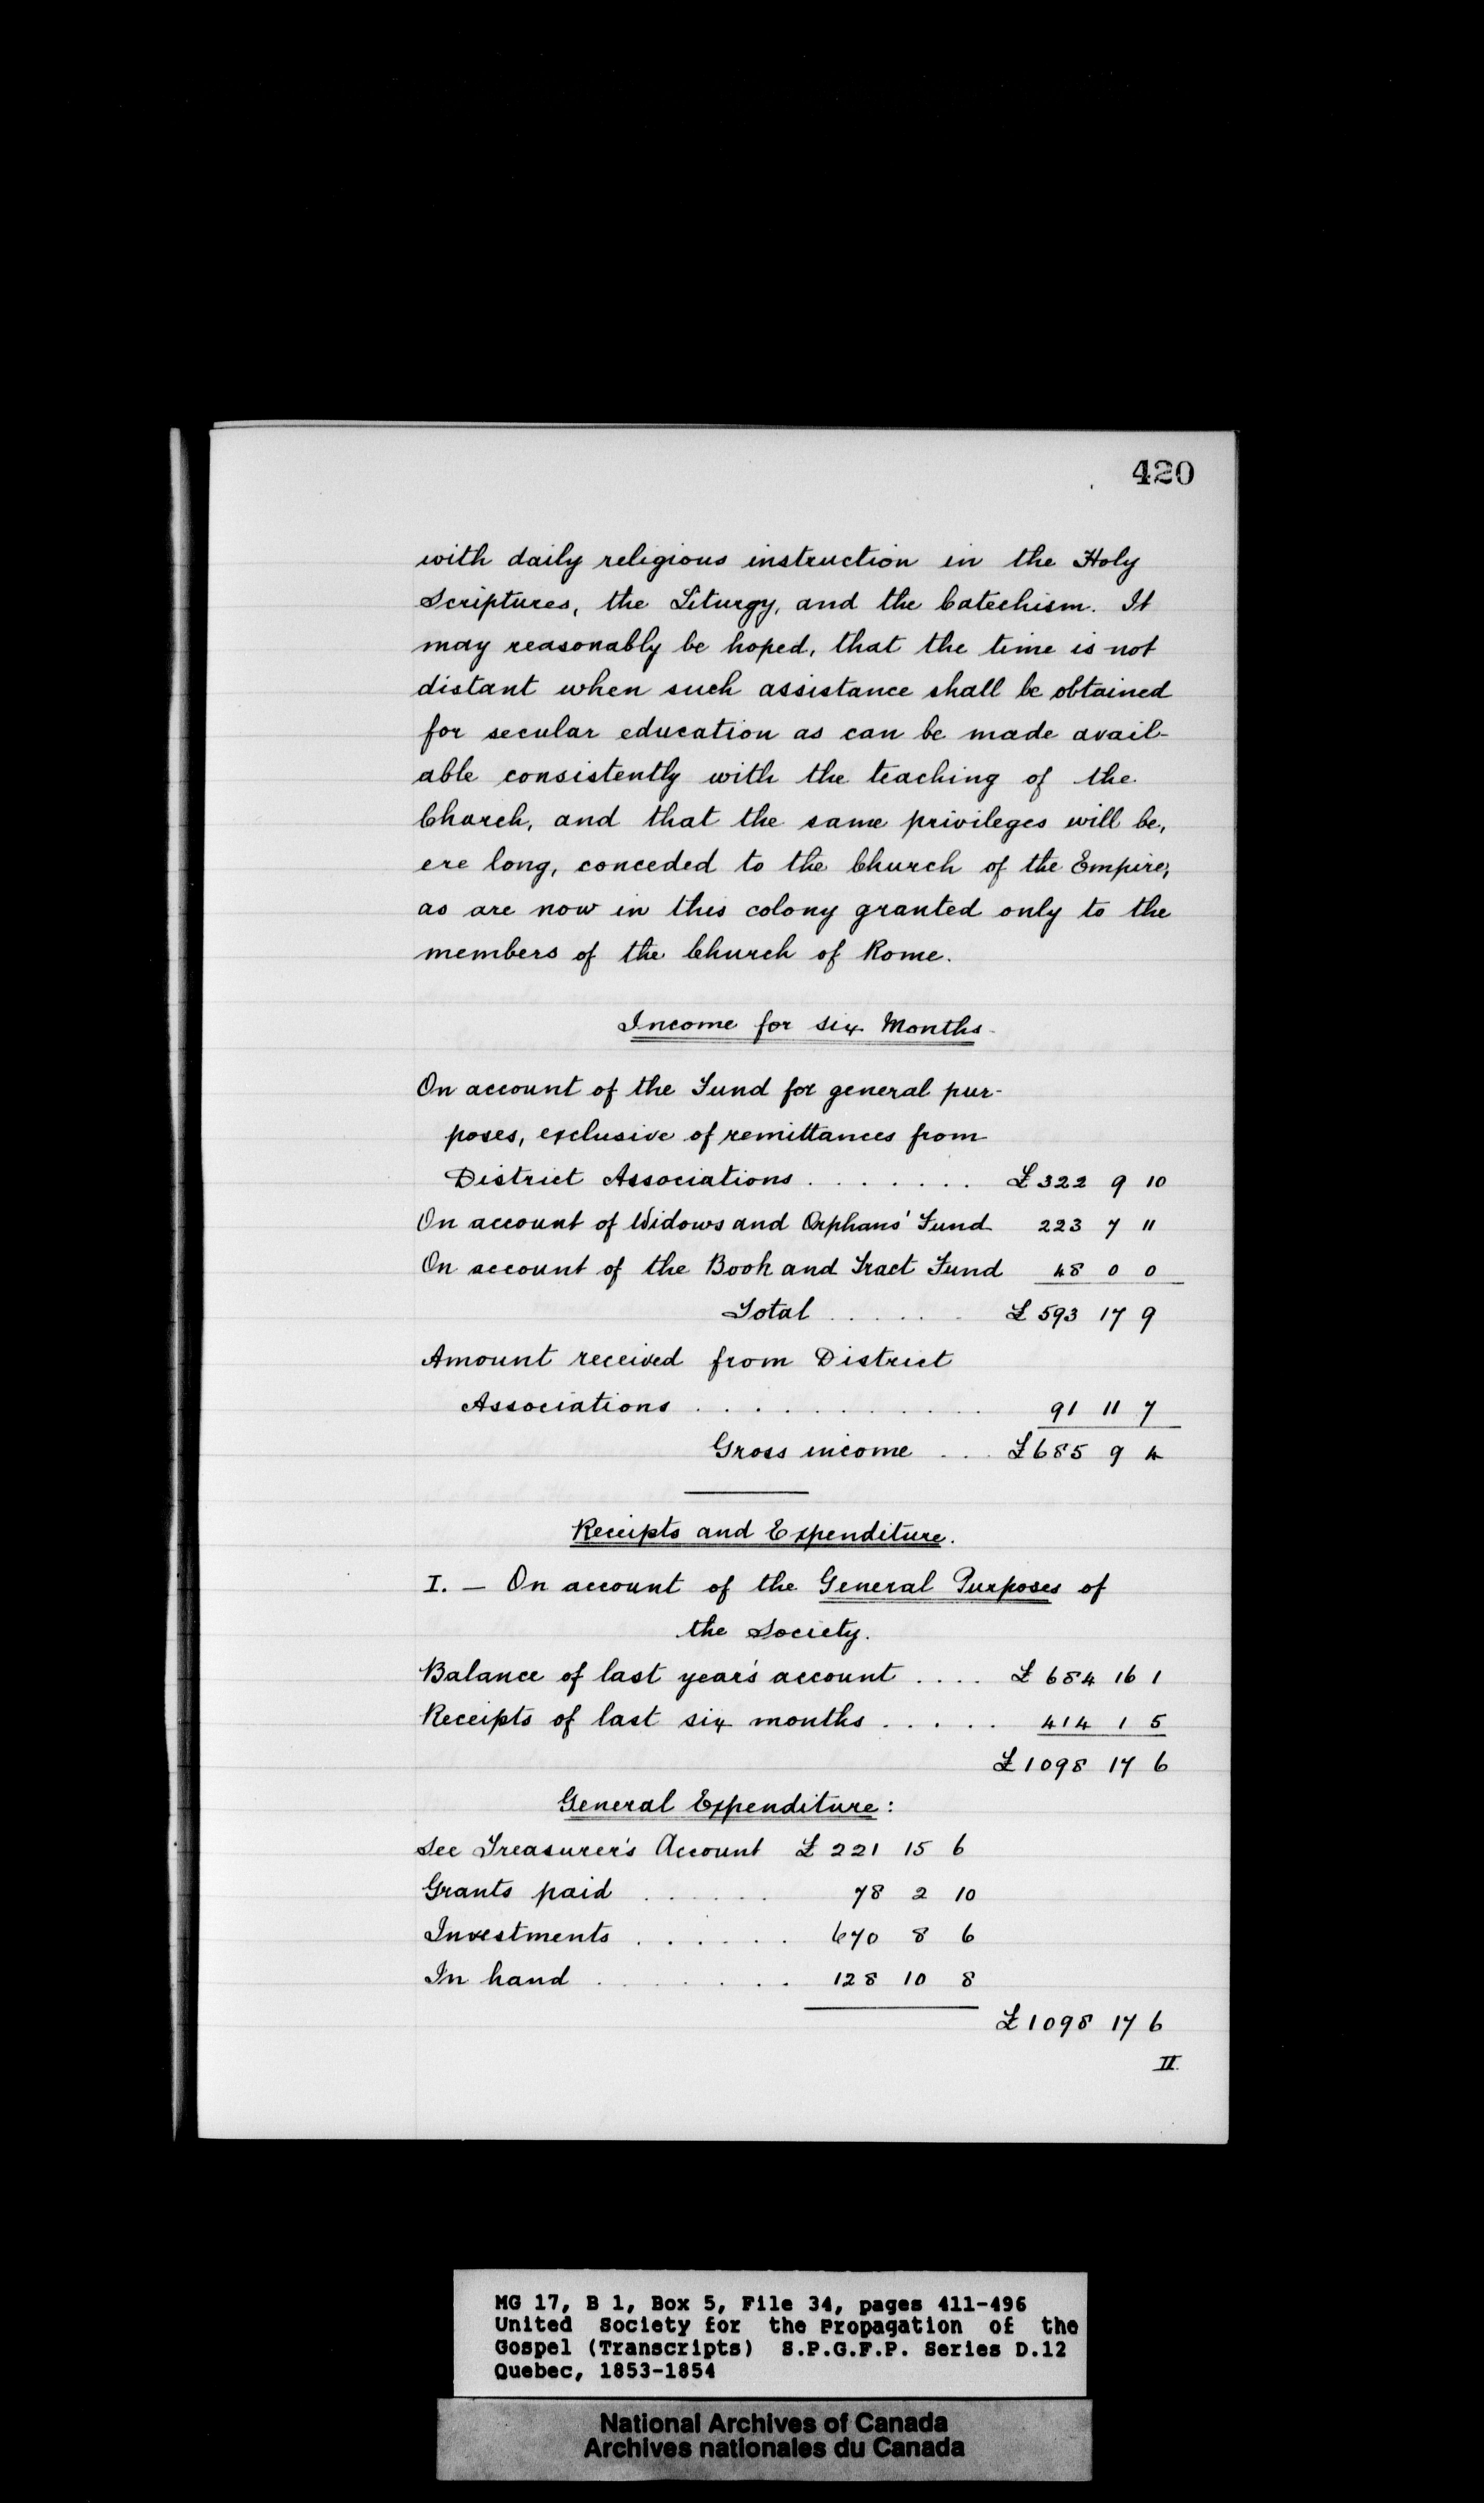 420
with daily religious instruction in the Holy
Scriptures, the Liturgy, and the Catechism. It
may reasonably be hoped, that the time is not
distant when such assistance shall be obtained
for secular education as can be made avail-
able consistently with the teaching of the
Church, and that the same privileges will be,
ere long, conceded to the Church of the Empire,
as are now in this colony granted only to the
members of the Church of Rome.
Income for six Months.
On account of the Fund for general pur-
poses, exclusive of remittances from
District Associations . . . . . . . £322 9 10
On account of Widows and Orphans' Fund 223 7 11
On account of the Book and Tract Fund 48 0 0
Total . . . . . £593 17 9
Amount received from District
Associations . . . . . . . . . . . 91 11 7
Gross income . . . £685 9 4
Receipts and Expenditure.
I. — On account of the General Purposes of
the Society.
Balance of last year's account . . . . £684 16 1
Receipts of last six months . . . . . 414 1 5
£1098 17 6
General Expenditure:
See Treasurer's Account £221 15 6
Grants paid . . . . . 78 2 10
Investments . . . . . . 670 8 6
In hand . . . . . . . 128 10 8
£1098 17 6
II.
MG 17, B 1, Box 5, File 34, pages 411-496
United Society for the Propagation of the
Gospel (Transcripts) S.P.G.F.P. Series D.12
Quebec, 1853-1854
National Archives of Canada
Archives nationales du Canada